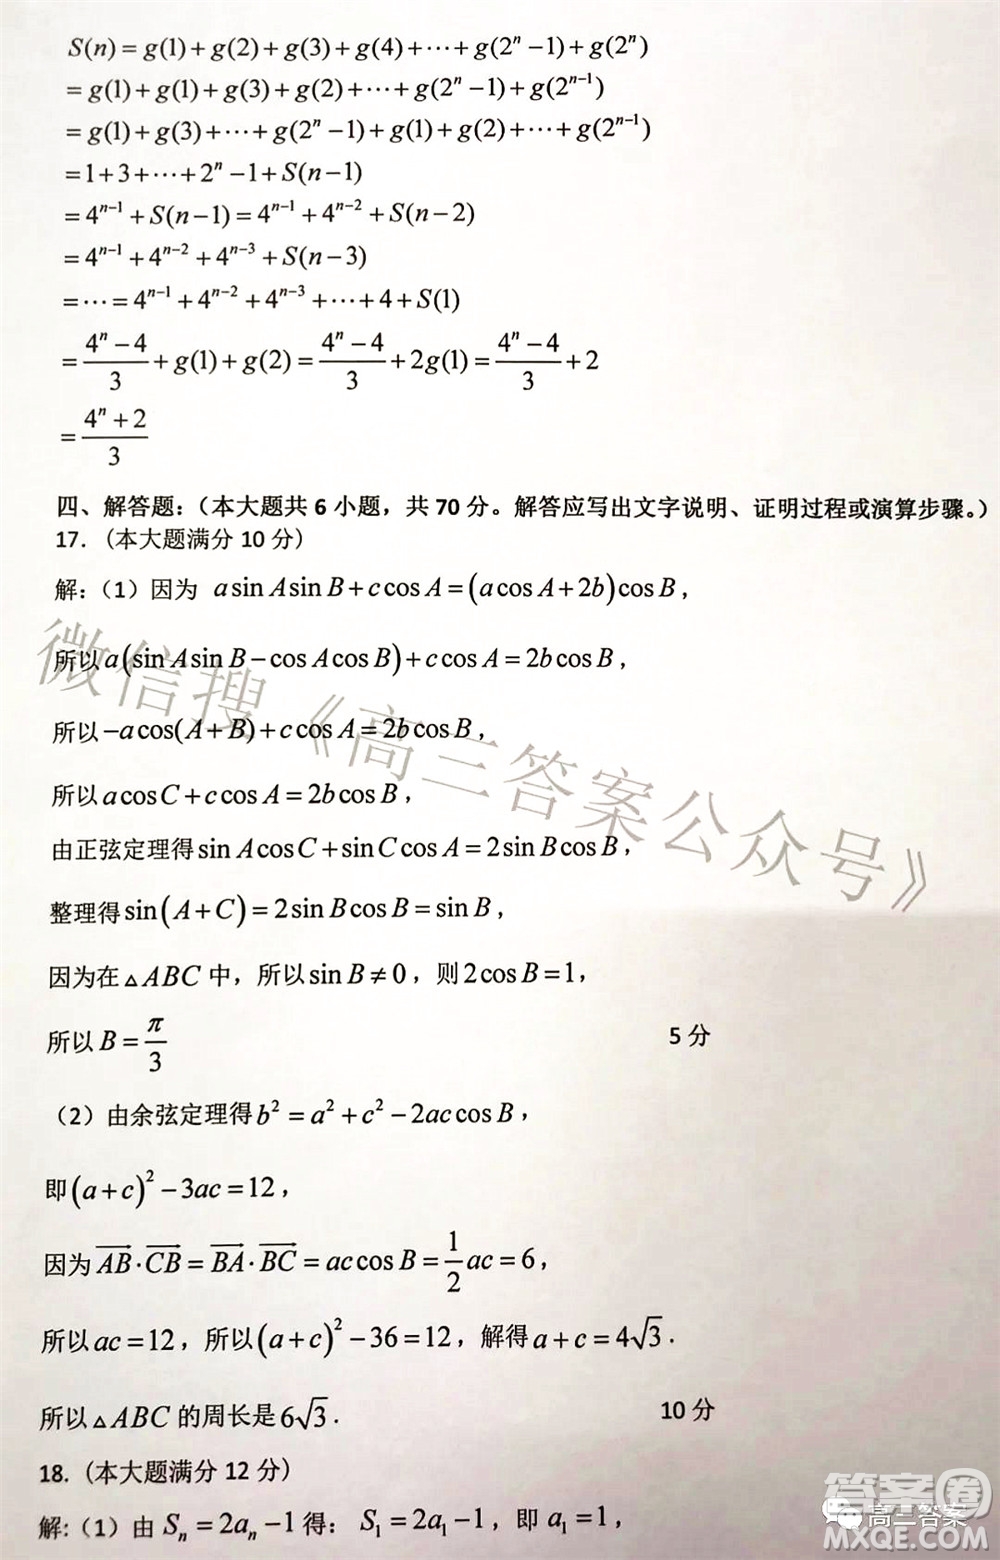 S(n)=g(1)+g(2)+g(3)+g(4)+⋯+g(2ⁿ−1)+g(2ⁿ)
=g(1)+g(1)+g(3)+g(2)+⋯+g(2ⁿ−1)+g(2ⁿ⁻¹)
=g(1)+g(3)+⋯+g(2ⁿ−1)+g(1)+g(2)+⋯+g(2ⁿ⁻¹)
=1+3+⋯+2ⁿ−1+S(n−1)
=4ⁿ⁻¹+S(n−1)=4ⁿ⁻¹+4ⁿ⁻²+S(n−2)
=4ⁿ⁻¹+4ⁿ⁻²+4ⁿ⁻³+S(n−3)
=⋯=4ⁿ⁻¹+4ⁿ⁻²+4ⁿ⁻³+⋯+4+S(1)
=(4ⁿ−4)/3+g(1)+g(2)=(4ⁿ−4)/3+2g(1)=(4ⁿ−4)/3+2
=(4ⁿ+2)/3
四、解答题:(本大题共 6 小题，共 70 分。解答应写出文字说明、证明过程或演算步骤。)
17. (本大题满分 10 分)
解:(1)因为 a sin A sin B+c cos A=(a cos A+2b)cos B，
所以 a(sin A sin B−cos A cos B)+c cos A=2b cos B，
所以 −a cos(A+B)+c cos A=2b cos B，
所以 a cos C+c cos A=2b cos B，
由正弦定理得 sin A cos C+sin C cos A=2sin B cos B，
整理得 sin(A+C)=2sin B cos B=sin B，
因为在△ABC 中，所以 sin B≠0，则 2cos B=1，
所以 B=π/3 5 分
(2)由余弦定理得 b²=a²+c²−2ac cos B，
即 (a+c)²−3ac=12，
因为 AB→·CB→=BA→·BC→=ac cos B=1/2 ac=6，
所以 ac=12，所以 (a+c)²−36=12，解得 a+c=4√3．
所以△ABC 的周长是 6√3． 10 分
18. (本大题满分 12 分)
解:(1)由 Sₙ=2aₙ−1 得: S₁=2a₁−1，即 a₁=1，
微信搜《高三答案公众号》
答案圈
高三答案
MXQE.COM